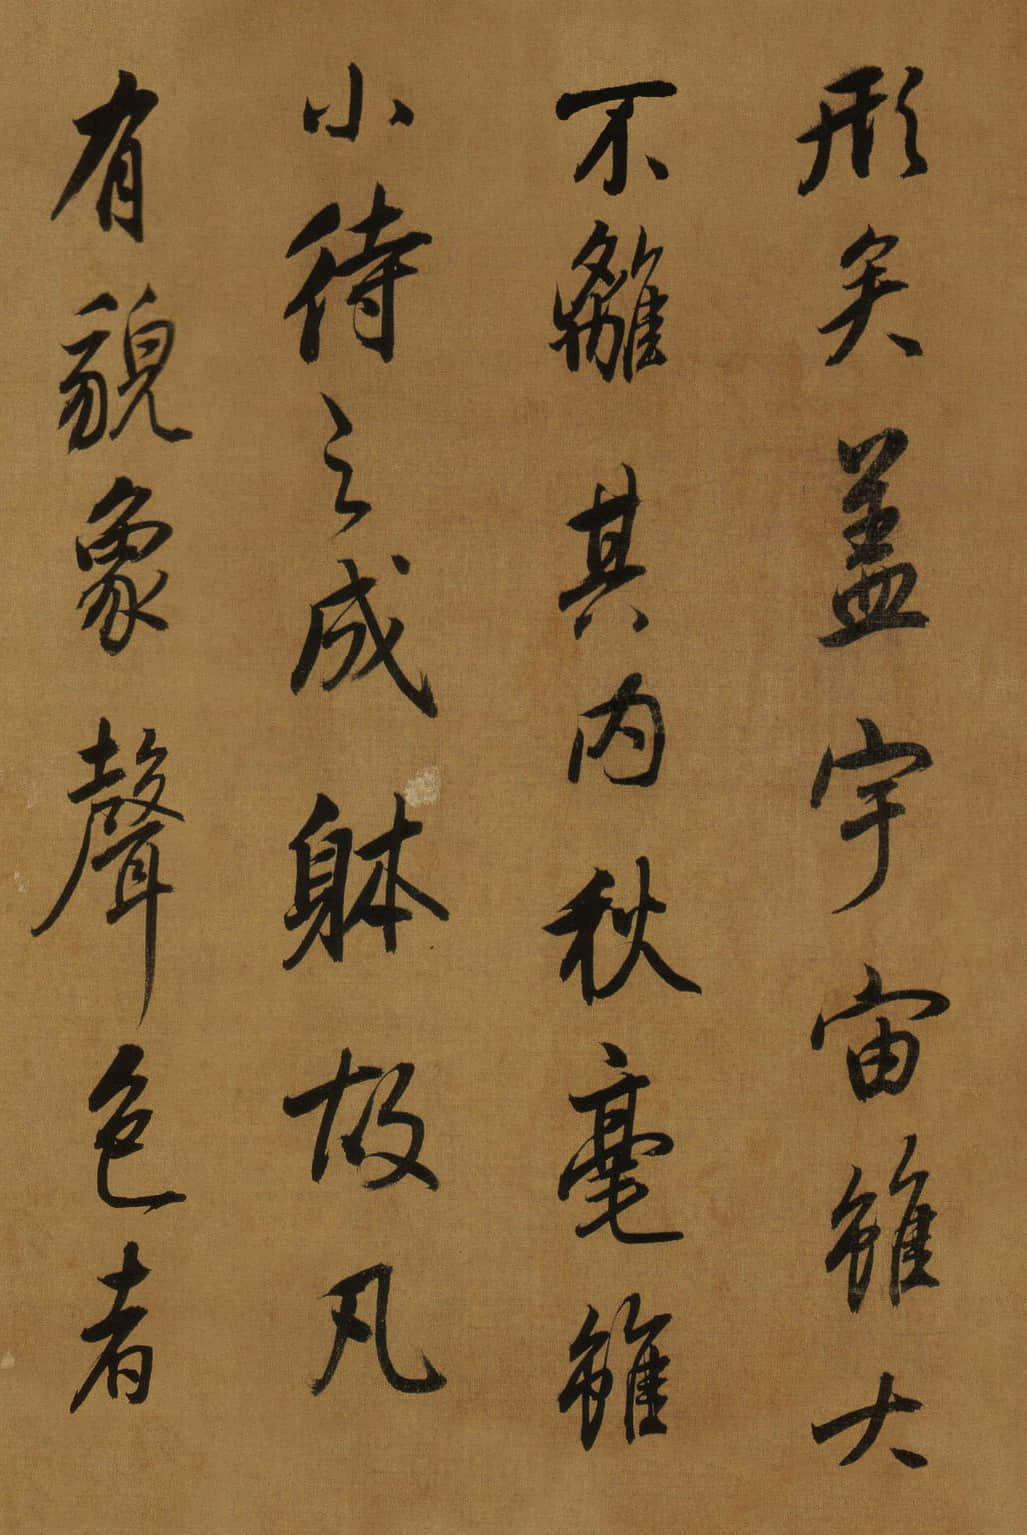 形矣盖宇宙雖大
不離其内秋毫雖
小待之成躰故凡
有貌象聲色者